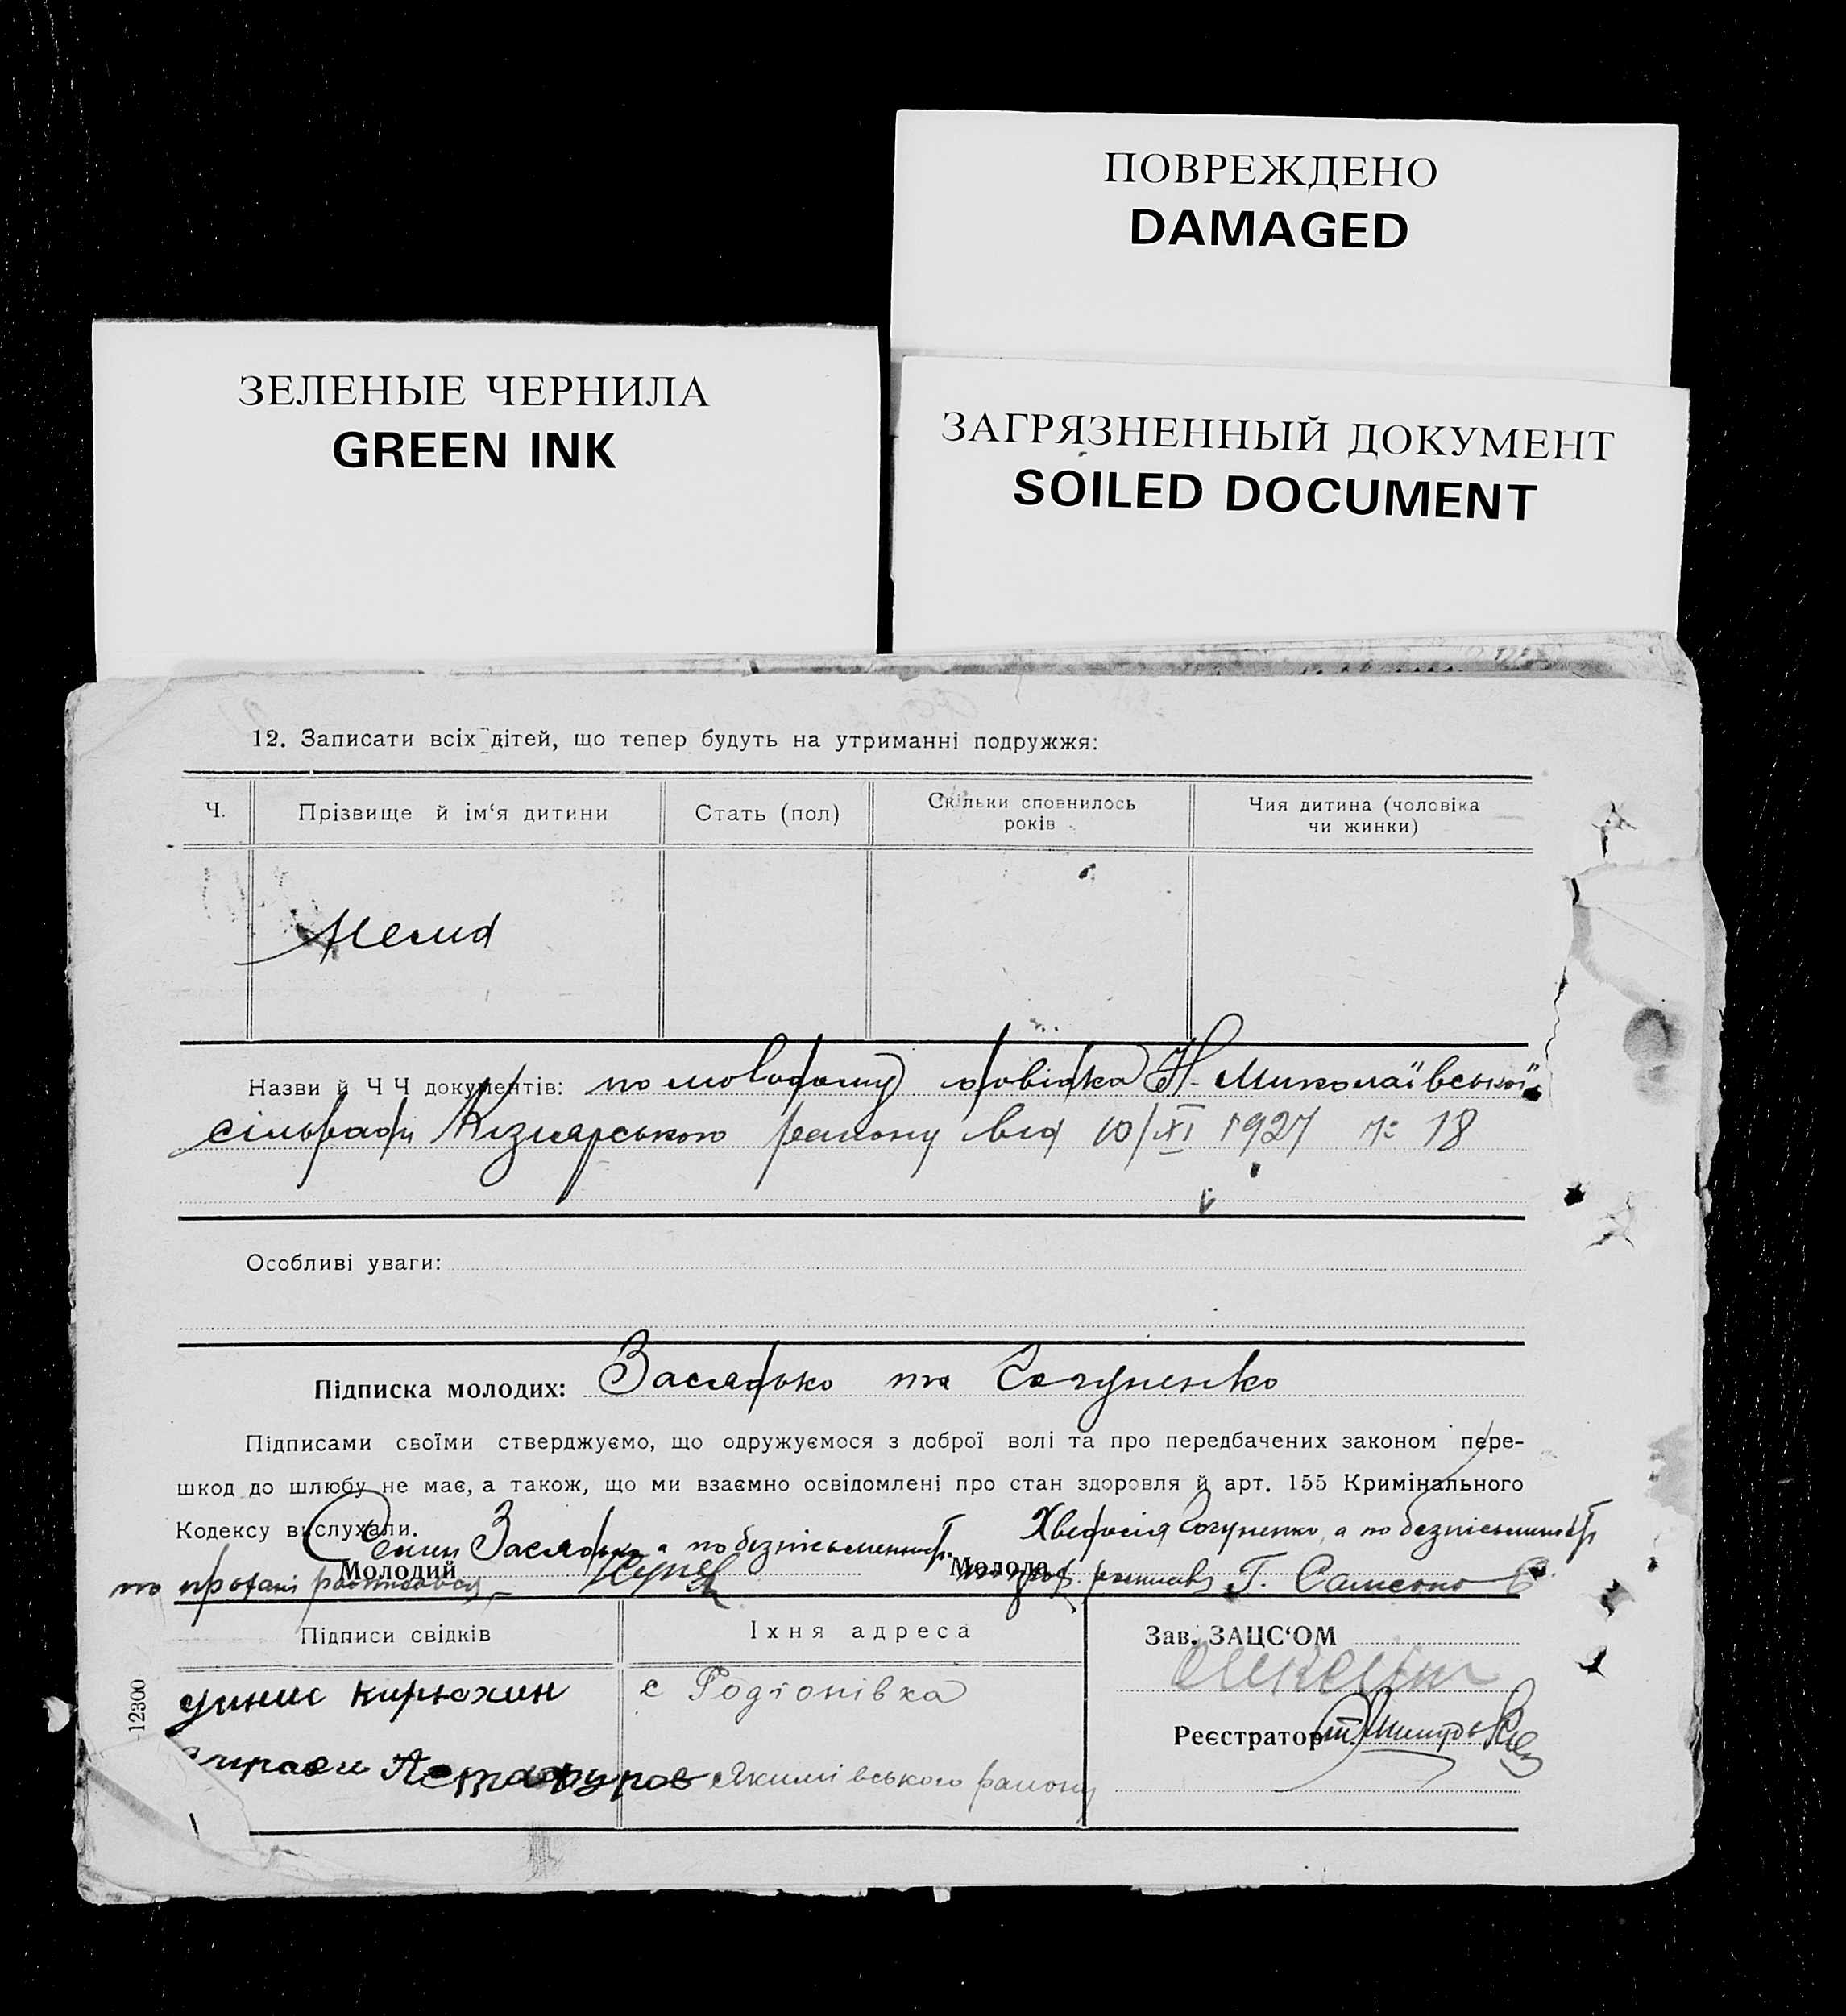 ПОВРЕЖДЕНО
DAMAGED
ЗЕЛЕНЫЕ ЧЕРНИЛА
GREEN INK
ЗАГРЯЗНЕННЫЙ ДОКУМЕНТ
SOILED DOCUMENT
12. Записати всіх дітей, що тепер будуть на утриманні подружжя:
Ч.
Прізвище й ім‘я дитини
Стать (пол)
Скільки сповнилось
років
Чия дитина (чоловіка
чи жинки)
Нема
Назви й Ч Ч документів: по молодому довідка Н-Миколаївської
сільради району від 10/XI 1927 № 18
Особливі уваги:
Підписка молодих: Заслядько та Согуненко
Підписами своїми стверджуємо, що одружуємося з доброї волі та про передбачених законом пере-
шкод до шлюбу не має, а також, що ми взаємно освідомлені про стан здоровля й арт. 155 Кримінального
Кодексу вислухали.
Семен Заслядько а по безписьменности
Хведосія Согуненко, а по безписьменности
Молодий
по прохані
Молода
Підписи свідків
Їхня адреса
Зав. ЗАЦС‘ОМ
Кирюхин
с Родіонівка
Реєстратор
Астафуров
Якимівського району
12300